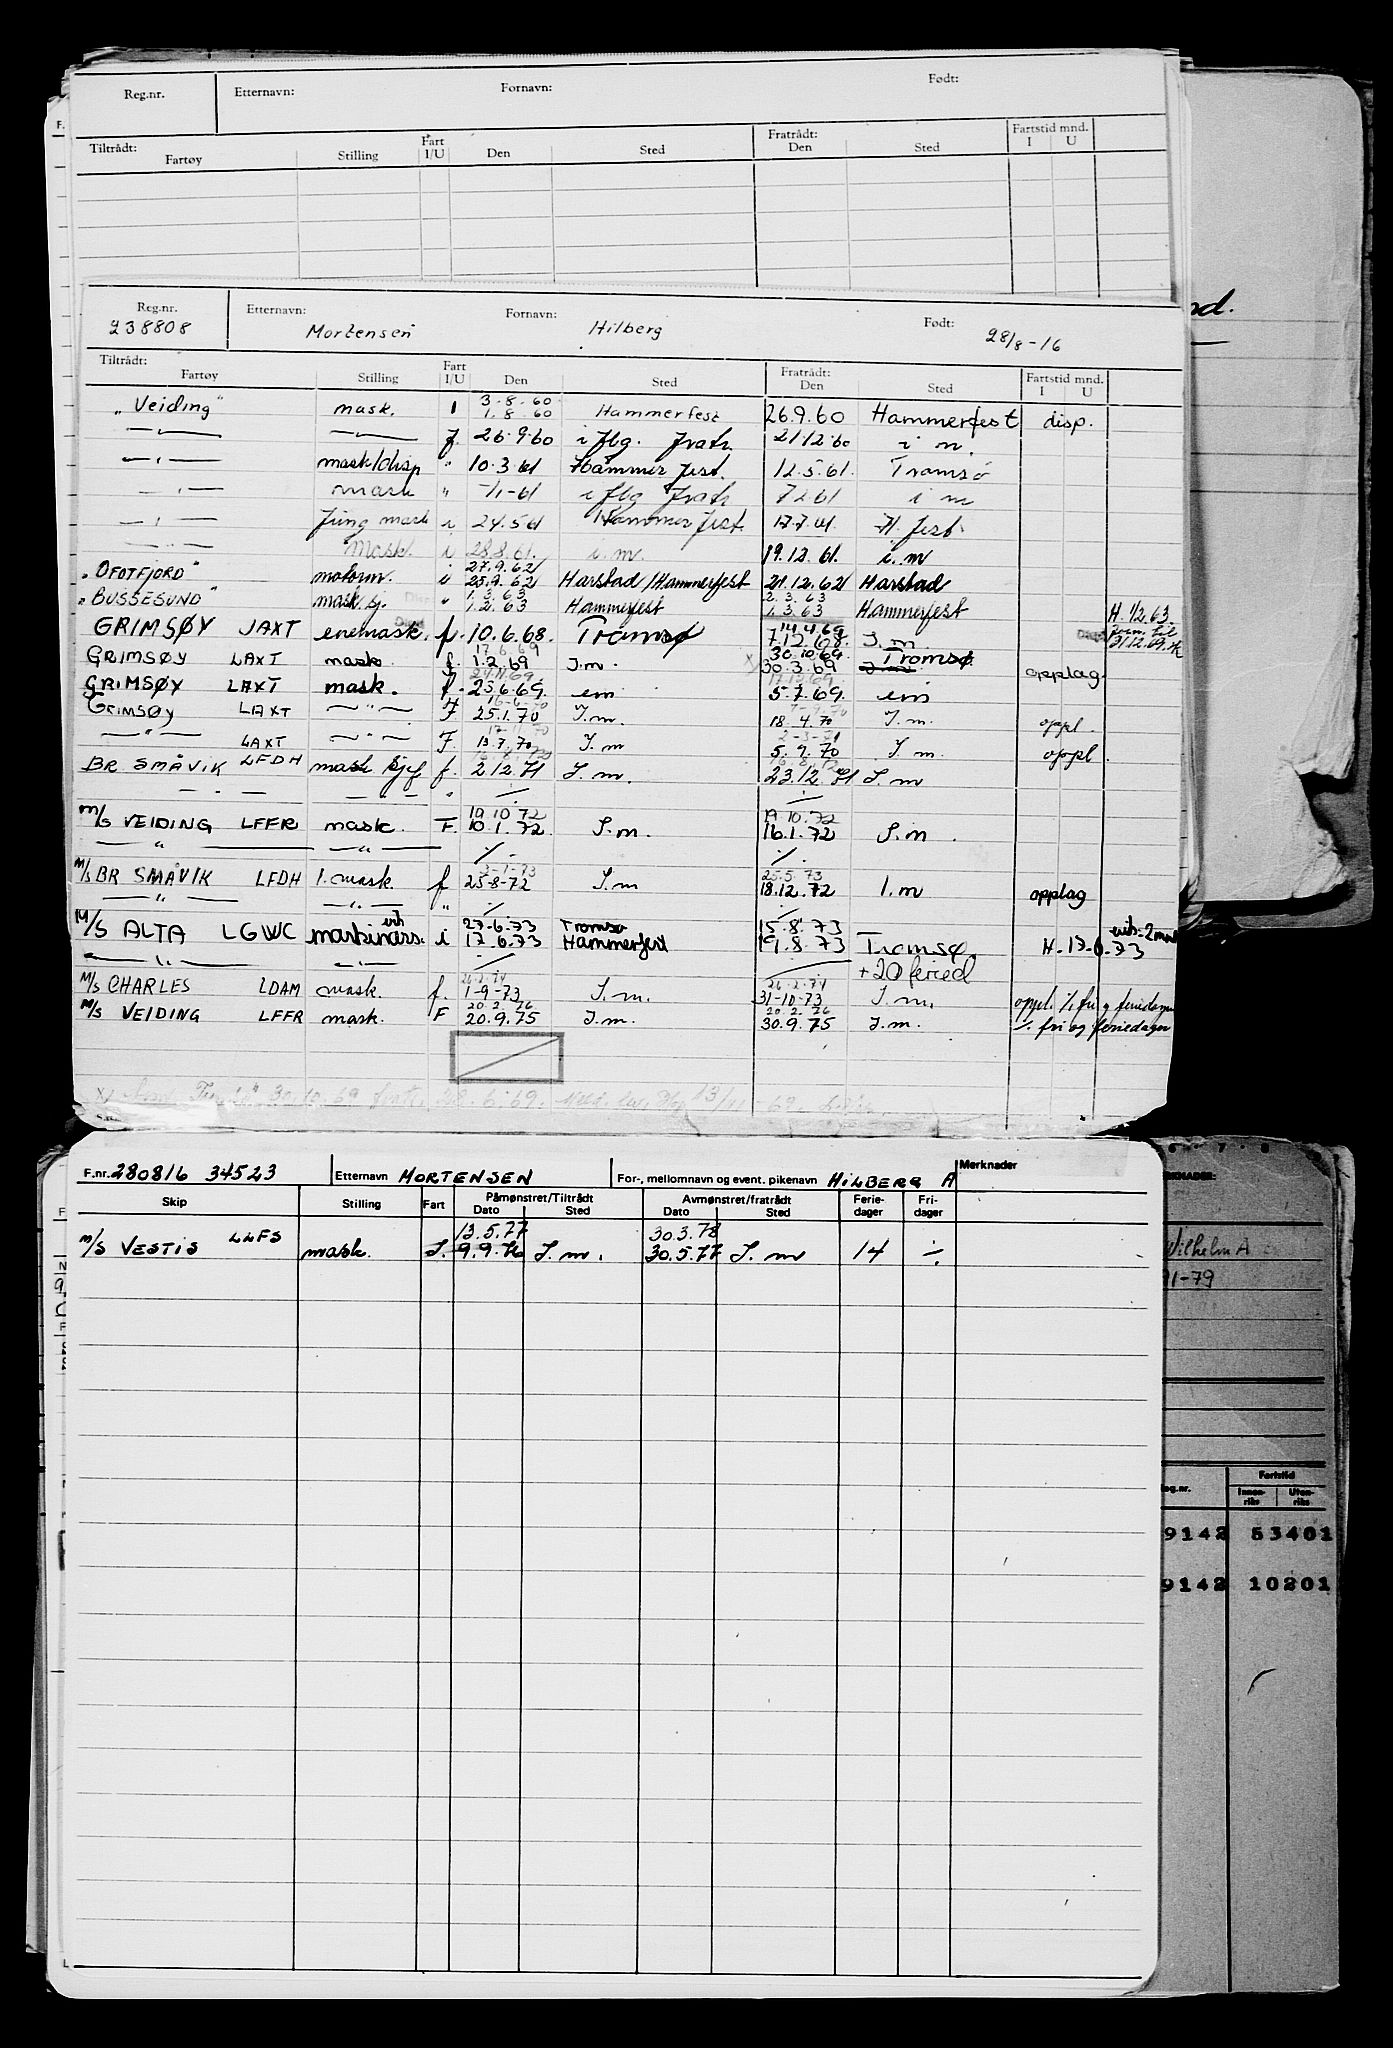 Reg.nr. Etternavn: Fornavn: Født:
Tiltrådt: Fartøy Stilling Fart I/U Den Sted Fratrådt: Den Sted Fartstid mnd. I U
Reg.nr. 238808 Etternavn: Mortensen Fornavn: Hilberg Født: 28/8-16
Tiltrådt: Fartøy Stilling Fart I/U Den Sted Fratrådt: Den Sted Fartstid mnd. I U
3.8.60
"Veiding" mask. 1 1.8.60 Hammerfest 26.9.60 Hammerfest disp.
— " — — " — f. 26.9.60 i fbg. fratr. 21/12.60 i m.
— " — mask/disp " 10.3.61 Hammerfest. 12.5.61. Tromsø
— " — mask " -/1-61 i fbg fratr 7 2 61 i m
— " — Jung mask i 24.5.61 Hammerfest. 17.7.61. H.fest.
— " — Mask. i 28.8.61. i.m. 19.12.61. i.m
27.9.62
"OFOTFJORD" motorm. i 25.9.62 Harstad/Hammerfest 21.12.62 Harstad
1.3.63 2.3.63
"BUSSESUND" mask.sj. " 1.2.63 Hammerfest 1.3.63 Hammerfest H. 1/2.63.
14.4.69
GRIMSØY JAXT enemask. f. 10.6.68. Tromsø 7.12.68. I.m 31.12.69.
17.6.69 30.10.69 Tromsø
GRIMSØY LAXT mask. f. 1.2.69 I.m. x) 30.3.69 I.m. opplag.
24.11.69. 17.12.69
GRIMSØY LAXT mask. f. 25.6.69. em 5.7.69. em
16-6-70
GRIMSØY LAXT — " — F 25.1.70 I.m. 18.4.70 I.m. oppl.
— " — LAXT — " — F. 13.7.70 I.m 5.9.70 I.m oppl.
BR SMÅVIK LFDH mask sjef f. 2 12.71 I.m. 23.12.71 I.m
— " — — " — " ./. ./.
10 10 72 19 10.72
M/S VEIDING LFFR mask. F. 10.1.72. I.m. 16.1.72 I.m.
— " — — " — ./. ./.
25.5.73
M/S BR SMÅVIK LFDH 1.mask. f 25-8-72 I.m 18.12.72 I.m opplag
— " — — " — " ./. ./.
27.6.73 Tromsø 15.8.73
M/S ALTA LGWC maskinass. i 17.6.73 Hammerfest 19.8.73 Tromsø H. 17.6.73
— " — — " — ./. +20 feried
26.2.74 26.2.74
M/S CHARLES LDAM mask. f. 1-9-73 I.m. 31-10-73 I.m. oppl. ./. fri og feriedager
20.2.76 20.2.76
M/S VEIDING LFFR mask. F 20.9.75 I.m. 30.9.75 I.m. ./. fri og feriedager
x) 30.10.69 28.6.69. 13/11-69.
F.nr. 280816 34523 Etternavn MORTENSEN For-, mellomnavn og event. pikenavn HILBERG A Merknader
Skip Stilling Fart Påmønstret/Tiltrådt Dato Sted Avmønstret/fratrådt Dato Sted Feriedager Fridager
13.5.77 30.3.78
M/S VESTIS LLFS mask. I. 9.9.76 I.m. 30.5.77 I.m 14 ./.
nd.
6 · 7 · 8
KNADER:
Vilhelm A
1-79
Fartstid
eg.nr. Innenriks Utenriks
9142 53401
9142 10201